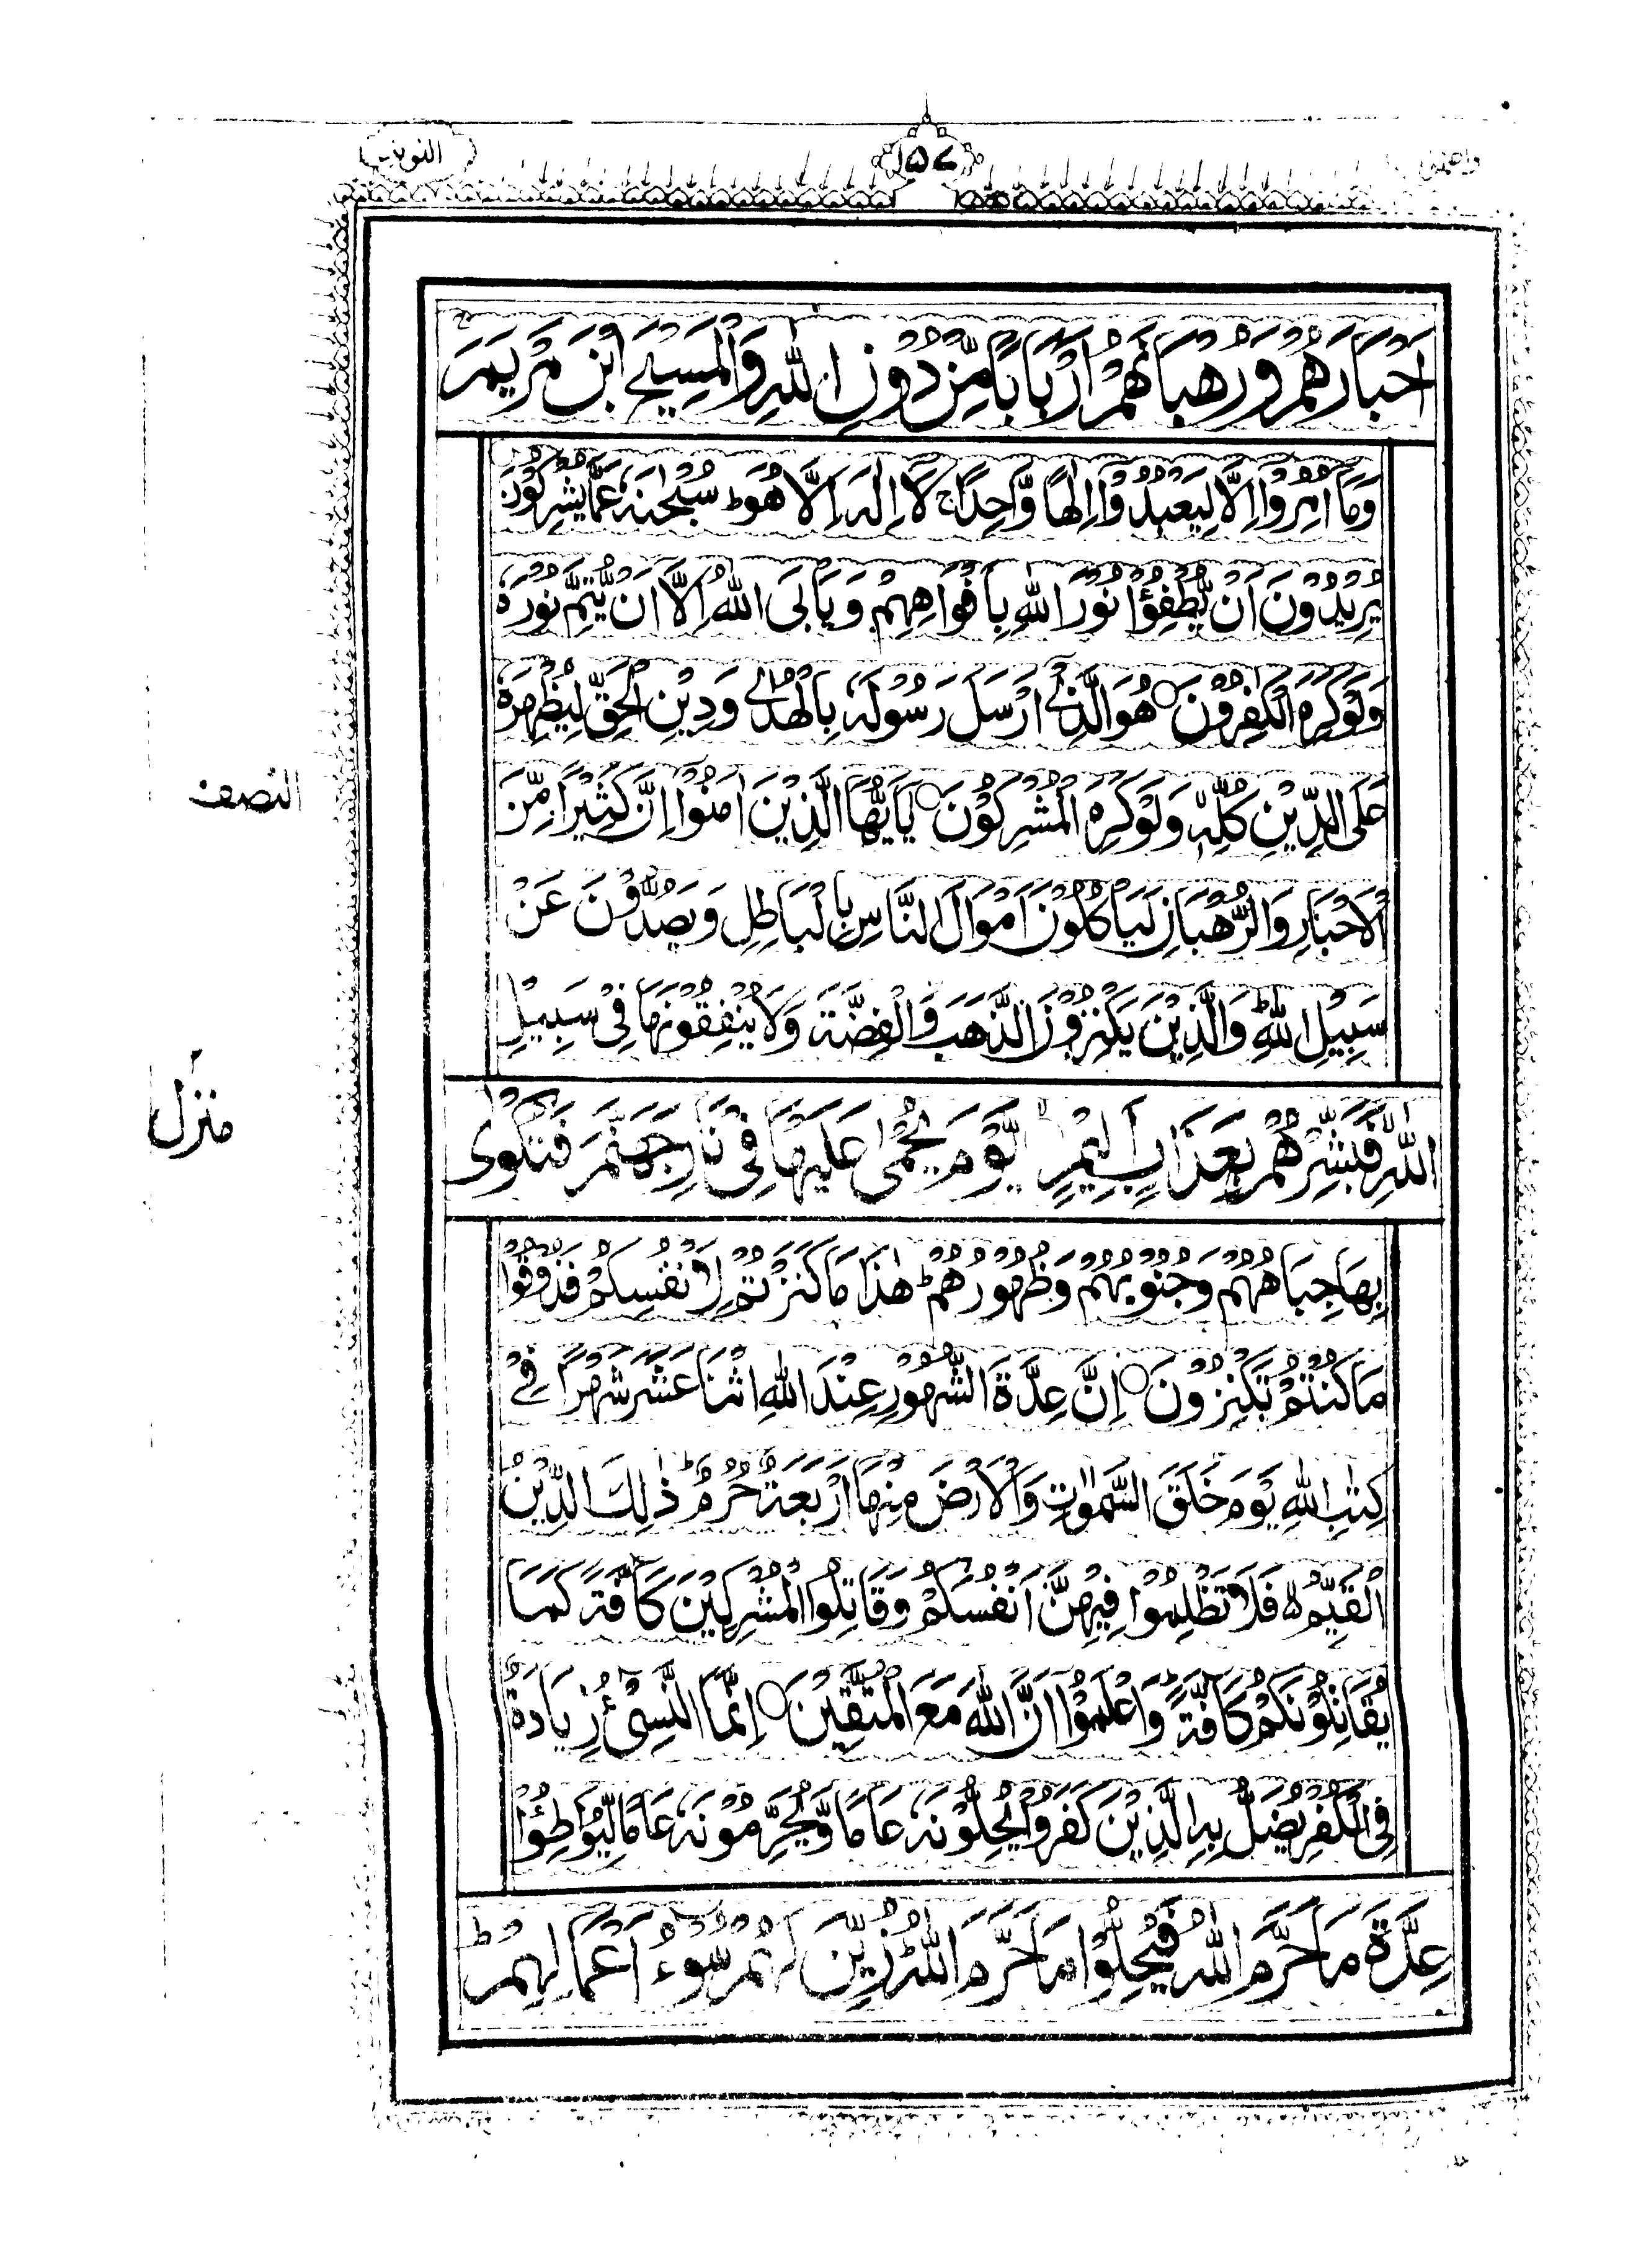 واعلموا ١٥٧ التوبة
اَحْبَارَهُمْ وَرُهْبَانَهُمْ اَرْبَابًا مِّنْ دُوْنِ اللّٰهِ وَالْمَسِيْحَ ابْنَ مَرْيَمَ ج
وَمَا اُمِرُوْا اِلَّا لِيَعْبُدُوْا اِلٰهًا وَّاحِدًا ج لَا اِلٰهَ اِلَّا هُوَ ط سُبْحٰنَهٗ عَمَّا يُشْرِكُوْنَ
يُرِيْدُوْنَ اَنْ يُّطْفِؤُا نُوْرَ اللّٰهِ بِاَفْوَاهِهِمْ وَيَاْبَى اللّٰهُ اِلَّا اَنْ يُّتِمَّ نُوْرَهٗ
وَلَوْ كَرِهَ الْكٰفِرُوْنَ ○ هُوَ الَّذِيْ اَرْسَلَ رَسُوْلَهٗ بِالْهُدٰى وَدِيْنِ الْحَقِّ لِيُظْهِرَهٗ
عَلَى الدِّيْنِ كُلِّهٖ وَلَوْ كَرِهَ الْمُشْرِكُوْنَ ○ يٰاَيُّهَا الَّذِيْنَ اٰمَنُوْا اِنَّ كَثِيْرًا مِّنَ
النصف
الْاَحْبَارِ وَالرُّهْبَانِ لَيَاْكُلُوْنَ اَمْوَالَ النَّاسِ بِالْبَاطِلِ وَيَصُدُّوْنَ عَنْ
سَبِيْلِ اللّٰهِ ط وَالَّذِيْنَ يَكْنِزُوْنَ الذَّهَبَ وَالْفِضَّةَ وَلَا يُنْفِقُوْنَهَا فِيْ سَبِيْلِ
منزل ٢
اللّٰهِ فَبَشِّرْهُمْ بِعَذَابٍ اَلِيْمٍ لا يَّوْمَ يُحْمٰى عَلَيْهَا فِيْ نَارِ جَهَنَّمَ فَتُكْوٰى
بِهَا جِبَاهُهُمْ وَجُنُوْبُهُمْ وَظُهُوْرُهُمْ ط هٰذَا مَا كَنَزْتُمْ لِاَنْفُسِكُمْ فَذُوْقُوْا
مَا كُنْتُمْ تَكْنِزُوْنَ ○ اِنَّ عِدَّةَ الشُّهُوْرِ عِنْدَ اللّٰهِ اثْنَا عَشَرَ شَهْرًا فِيْ
كِتٰبِ اللّٰهِ يَوْمَ خَلَقَ السَّمٰوٰتِ وَالْاَرْضَ مِنْهَا اَرْبَعَةٌ حُرُمٌ ط ذٰلِكَ الدِّيْنُ
الْقَيِّمُ لا فَلَا تَظْلِمُوْا فِيْهِنَّ اَنْفُسَكُمْ وَقَاتِلُوا الْمُشْرِكِيْنَ كَافَّةً كَمَا
يُقَاتِلُوْنَكُمْ كَافَّةً ط وَاعْلَمُوْا اَنَّ اللّٰهَ مَعَ الْمُتَّقِيْنَ ○ اِنَّمَا النَّسِيْءُ زِيَادَةٌ
فِي الْكُفْرِ يُضَلُّ بِهِ الَّذِيْنَ كَفَرُوْا يُحِلُّوْنَهٗ عَامًا وَّيُحَرِّمُوْنَهٗ عَامًا لِّيُوَاطِئُوْا
عِدَّةَ مَا حَرَّمَ اللّٰهُ فَيُحِلُّوْا مَا حَرَّمَ اللّٰهُ ط زُيِّنَ لَهُمْ سُوْءُ اَعْمَالِهِمْ ط